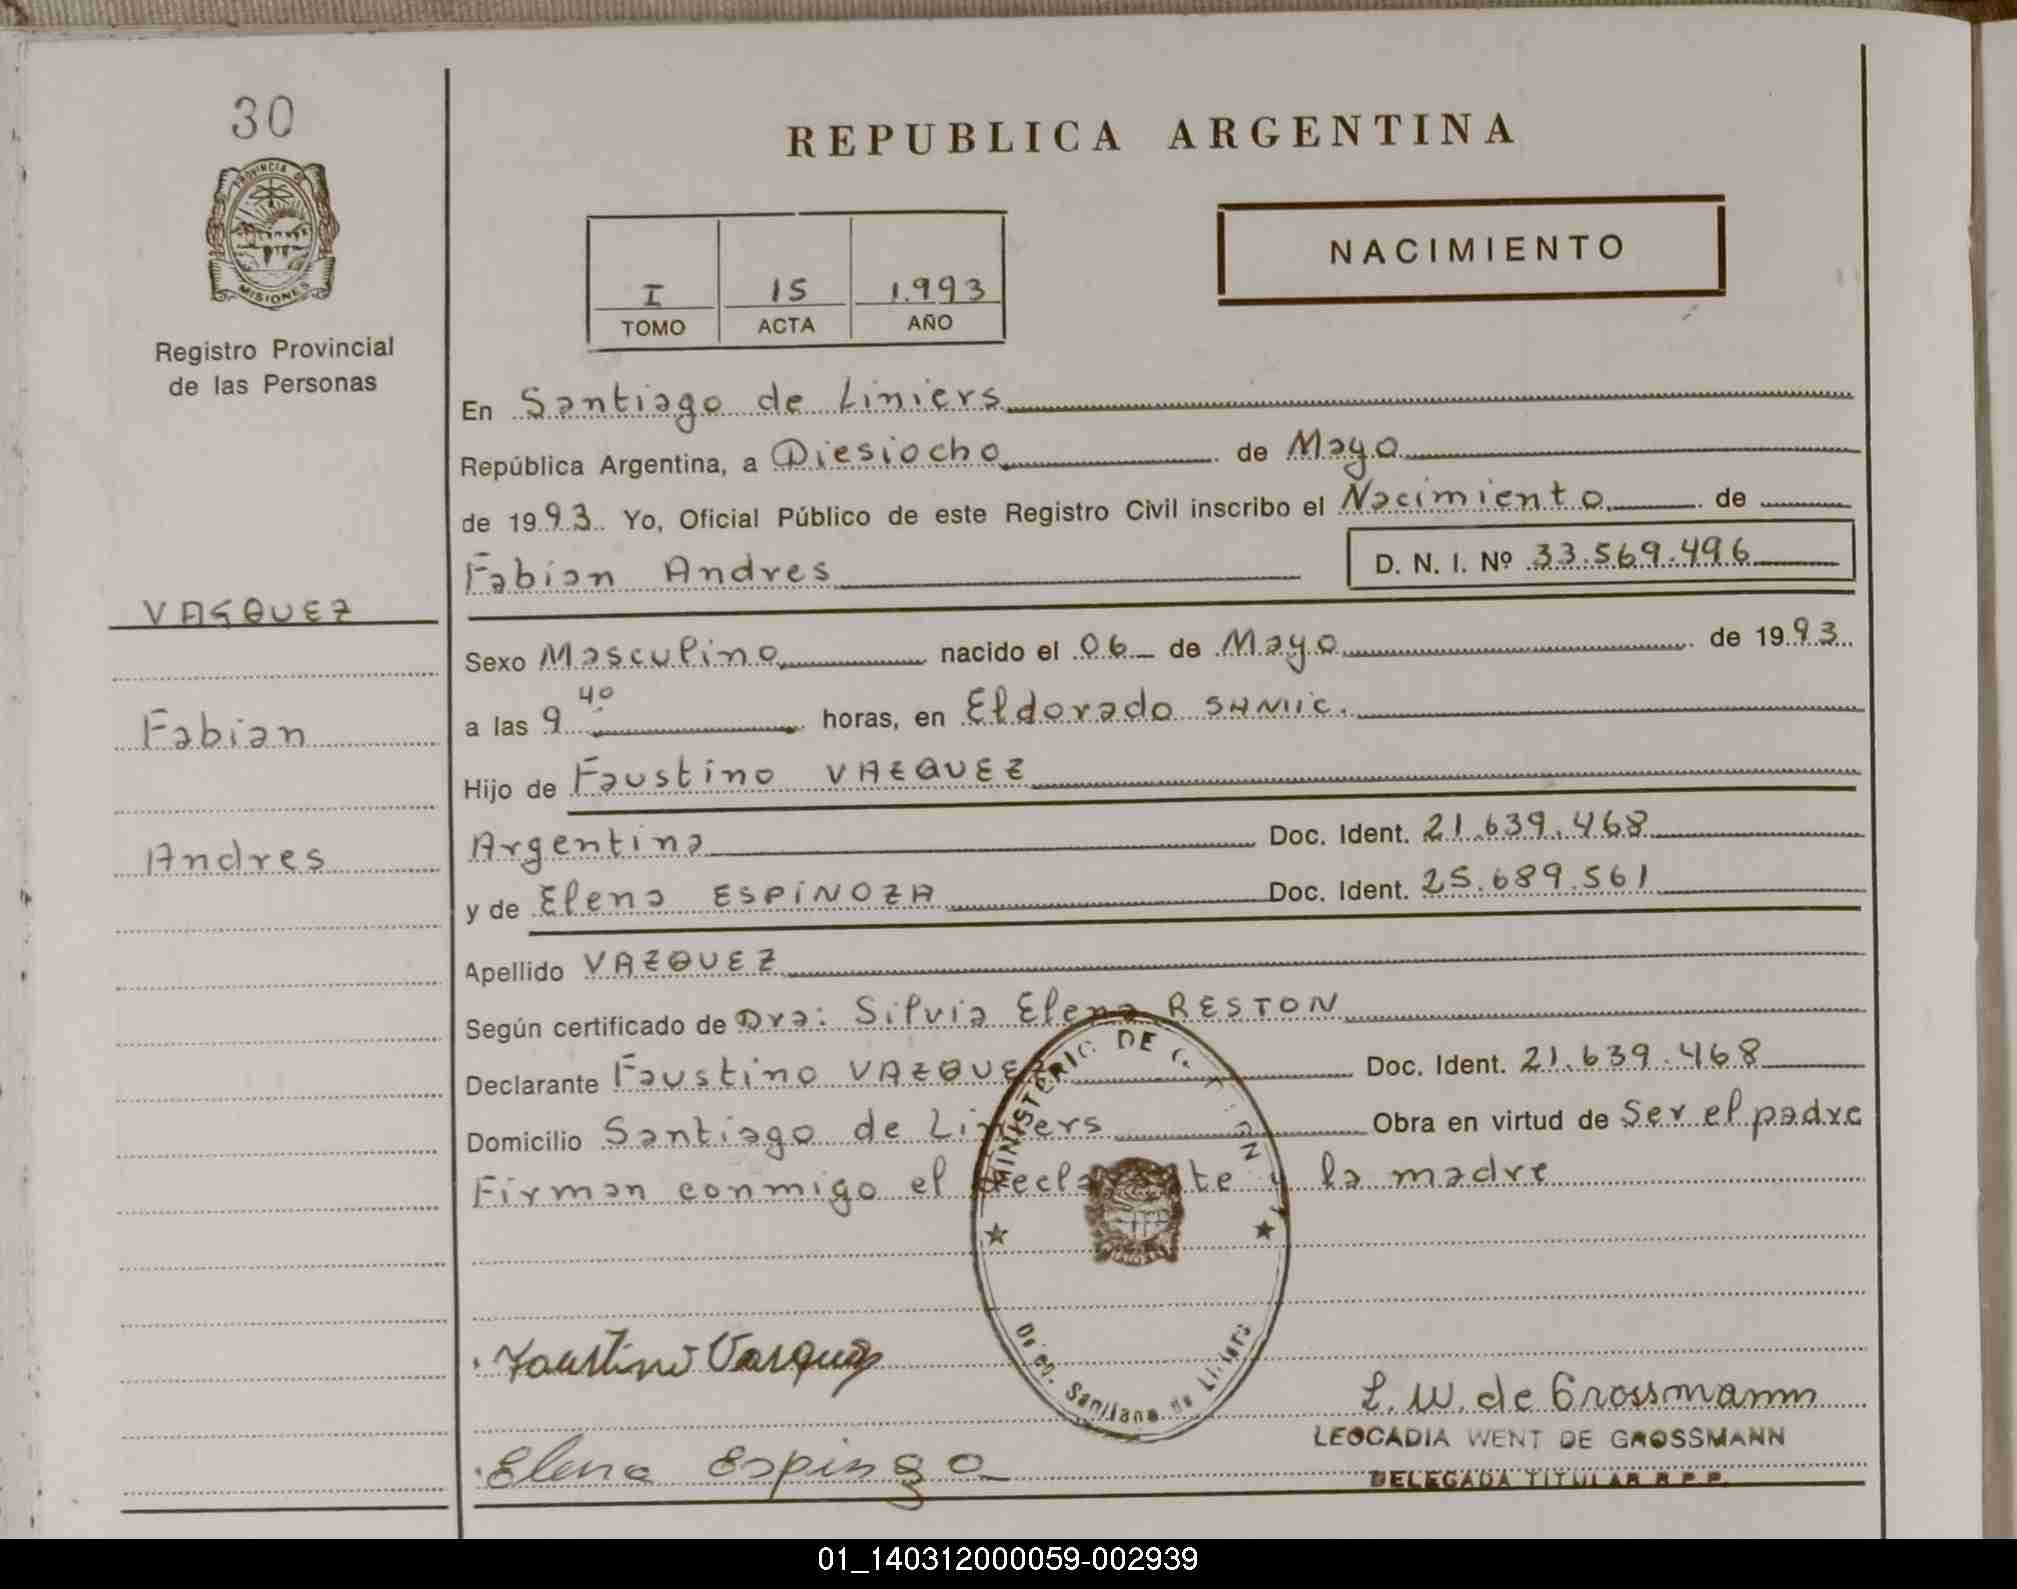 30
PROVINCIA DE
MISIONES
Registro Provincial
de las Personas
VASQUEZ
Fabian
Andres
REPUBLICA ARGENTINA
NACIMIENTO
I 15 1.993
TOMO ACTA AÑO
En Santiago de Liniers
República Argentina, a Diesiocho de Mayo
de 1993. Yo, Oficial Público de este Registro Civil inscribo el Nacimiento de
Fabian Andres D. N. I. Nº 33.569.496
Sexo Masculino nacido el 06 de Mayo de 1993
a las 9 40 horas, en Eldorado SAMIC.
Hijo de Faustino VAZQUEZ
Argentina Doc. Ident. 21.639.468
y de Elena ESPINOZA Doc. Ident. 25.689.561
Apellido VAZQUEZ
Según certificado de Dra: Silvia Elena RESTON
Declarante Faustino VAZQUEZ Doc. Ident. 21.639.468
Domicilio Santiago de Liniers Obra en virtud de Ser el padre
Firman conmigo el declarante y la madre
MINISTERIO DE
de Liniers
Faustino Vasquez
L. W. de Grossmann
LEOCADIA WENT DE GROSSMANN
Elena Espinoza
DELEGADA TITULAR R.P.P.
01_140312000059-002939